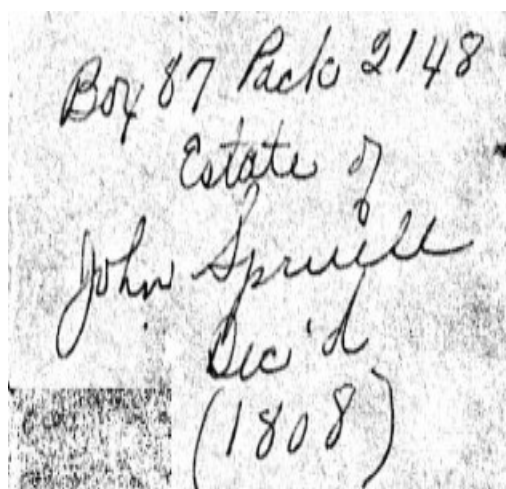 Box 87 Pack 2148
Estate of
John Spruill
Dec'd
(1808)